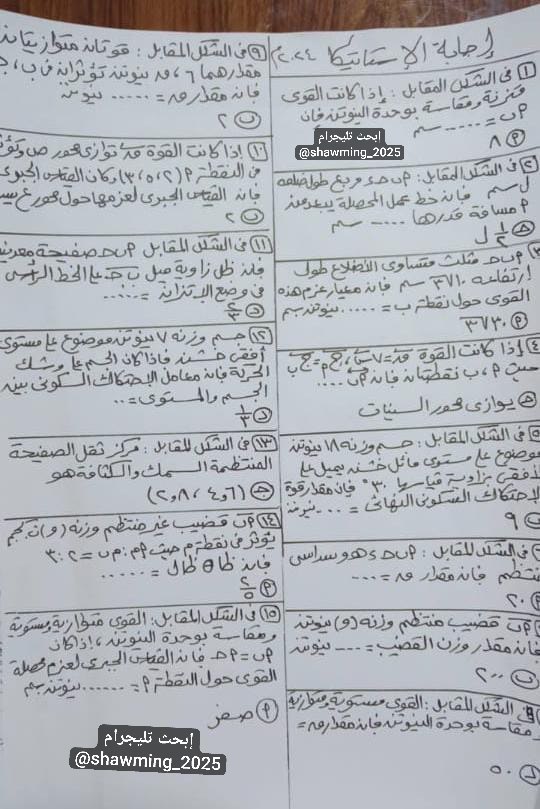 إجابة الإستاتيكا ٢٠٢٤م
① في الشكل المقابل : إذا كانت القوى
متزنة ومقاسة بوحدة النيوتن فإن
إبحث تليجرام
@shawming_2025
م ب = ..... سم
Ⓟ ٨
② في الشكل المقابل: م ب ح ء مربع طول ضلعه
ل سم فإن خط عمل المحصلة يبعد عن
م مسافة قدرها ..... سم
١/٢ ل
م ب ح مثلث متساوي الأضلاع طول
ارتفاعه ٣√١٠ سم فإن معيار عزم هذه
القوى حول نقطة ب = ..... نيوتن.سم
Ⓟ ٣√٣٠
④ إذا كانت القوة
حيث م ، ب نقطتان فإن
يوازي محور السينات
في الشكل المقابل : جسم وزنه ١٨ نيوتن
موضوع على مستوى مائل خشن يميل على
الأفقي بزاوية قياسها ٣٠° فإن مقدار قوة
الإحتكاك السكوني النهائي = ... نيوتن
٩
في الشكل المقابل : م ب ح ء هـ و سداسي
منتظم فإن مقدار ن = ....
Ⓟ ٢٠
م ب قضيب منتظم وزنه (و) نيوتن
فإن مقدار وزن القضيب = .... نيوتن
ب ٢٠٠
في الشكل المقابل : القوى مستوية ومتوازية
ومقاسة بوحدة النيوتن فإن مقدار ن =
٥٠
⑨ في الشكل المقابل : قوتان متوازيتان
مقدارهما ٦ ، ن نيوتن تؤثران في ب ، ح
فإن مقدار ن = ..... نيوتن
ب ٢
⑩ إذا كانت القوة ن توازي محور ص وتؤثر
في النقطة م (٢ ، ٥ ، ٣) وكان القياس الجبري
فإن القياس الجبري لعزمها حول محور ع
ب ٢
⑪ في الشكل المقابل م ب ح صفيحة معدنية
فإن ظل زاوية ميل ب ح على الخط الرأسي
في وضع الإتزان = .....
⑫ جسم وزنه ٧ نيوتن موضوع على مستوى
أفقي خشن فإذا كان الجسم على وشك
الحركة فإن معامل الإحتكاك السكوني بين
الجسم والمستوى = ..
١/٣
⑬ في الشكل المقابل : مركز ثقل الصفيحة
المنتظمة السمك والكثافة هو
⑭ م ب قضيب غير منتظم وزنه (و) ث.كجم
يؤثر في نقطة م حيث
فإن ظا θ ظا ل = .....
Ⓟ ٢/٥
⑮ في الشكل المقابل: القوى متوازية ومستوية
ومقاسة بوحدة النيوتن ، إذا كان
م ب = م ح فإن القياس الجبري لعزم محصلة
القوى حول النقطة م = ..... نيوتن.سم
Ⓟ صفر
إبحث تليجرام
@shawming_2025